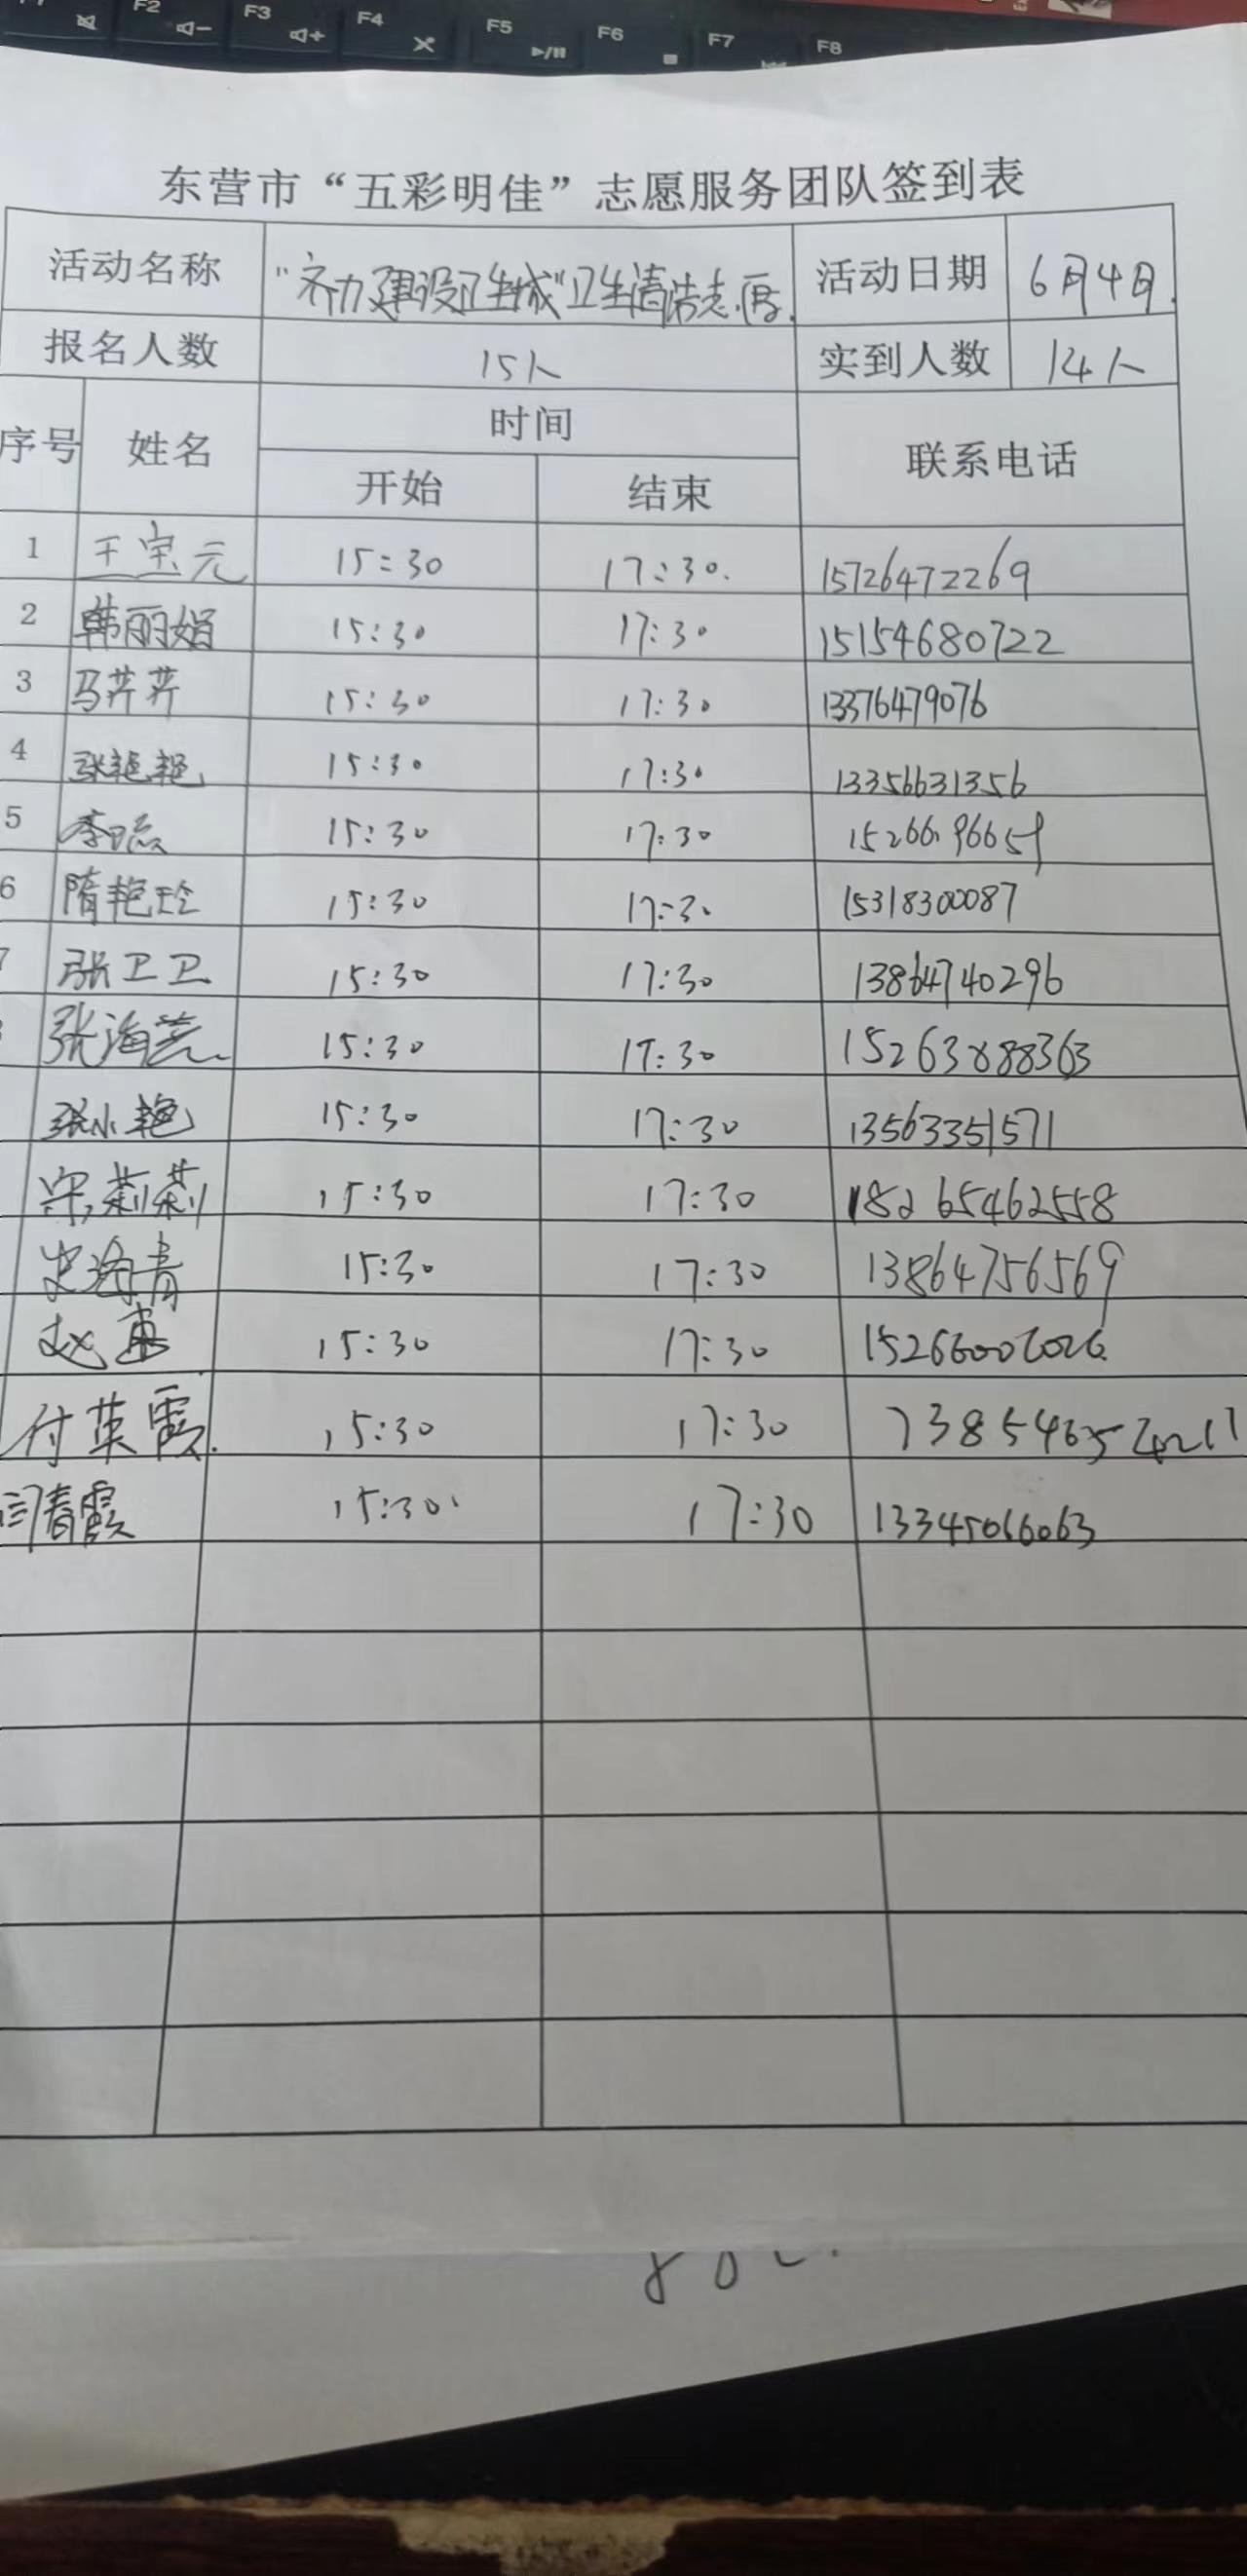 F2 F3 F4 F5 F6 F7 F8
东营市“五彩明佳”志愿服务团队签到表
活动名称 “齐力建设卫生城”卫生清洁志愿 活动日期 6月4日
报名人数 15人 实到人数 14人
序号 姓名 时间 联系电话
开始 结束
1 王宝元 15:30 17:30 15726472269
2 韩丽娟 15:30 17:30 15154680722
3 马芹芹 15:30 17:30 13376479076
4 张艳艳 15:30 17:30 13356631356
5 李 15:30 17:30 15266196659
6 隋艳玲 15:30 17:30 15318300087
7 张卫卫 15:30 17:30 13864740296
张海燕 15:30 17:30 15263888363
张小艳 15:30 17:30 13563351571
宋莉莉 15:30 17:30 18265462558
史海青 15:30 17:30 13864756569
赵 15:30 17:30
付英霞 15:30 17:30
闫春霞 15:30 17:30 13345066063